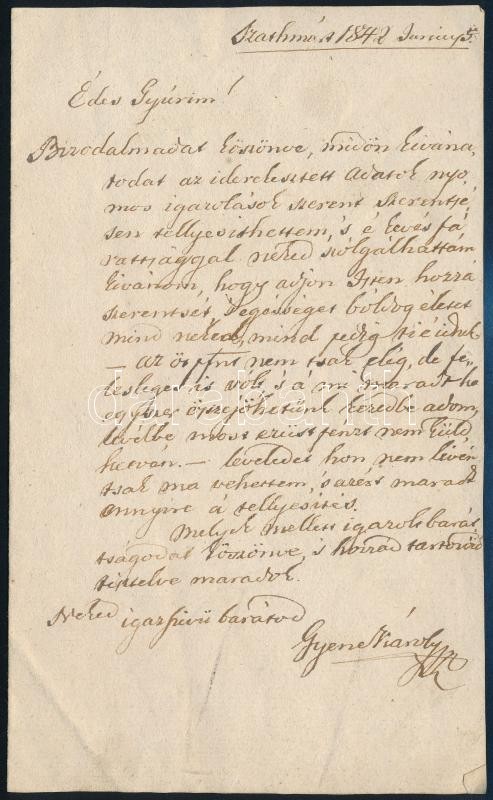 Szathmárt 1842 Junius 5.
Édes Gyúrim!
Bizodalmadat köszönve, midőn kivána,
todat az iderekesztett adatok nyo,
mos igazolások szerent szerentsé,
sen tellyesithettem, 's é kevés fá,
rattsággal néked szolgálhattam
kivánom, hogy adjon Isten hozzá
szerentsét, egésséget bóldog életet
mind néked, mind pedig tieidnek
— az öt pfnt nem tsak elég, de fe,
lesleges is vólt, 's á mi maradt ha
egyszer öszvejöhetünk kezedbe adom,
levelbe most ezüst pénzt nem küld
hetvén. — leveledet hon nem lévén
tsak ma vehettem, 's azért maradt
ennyire á tellyesítés.
Melyek mellett igazolt bará,
tságodat köszönve, 's hozzád tartozóid
tisztelve maradok.
Néked igaz szivü barátod
Gyene Károly
darabanth